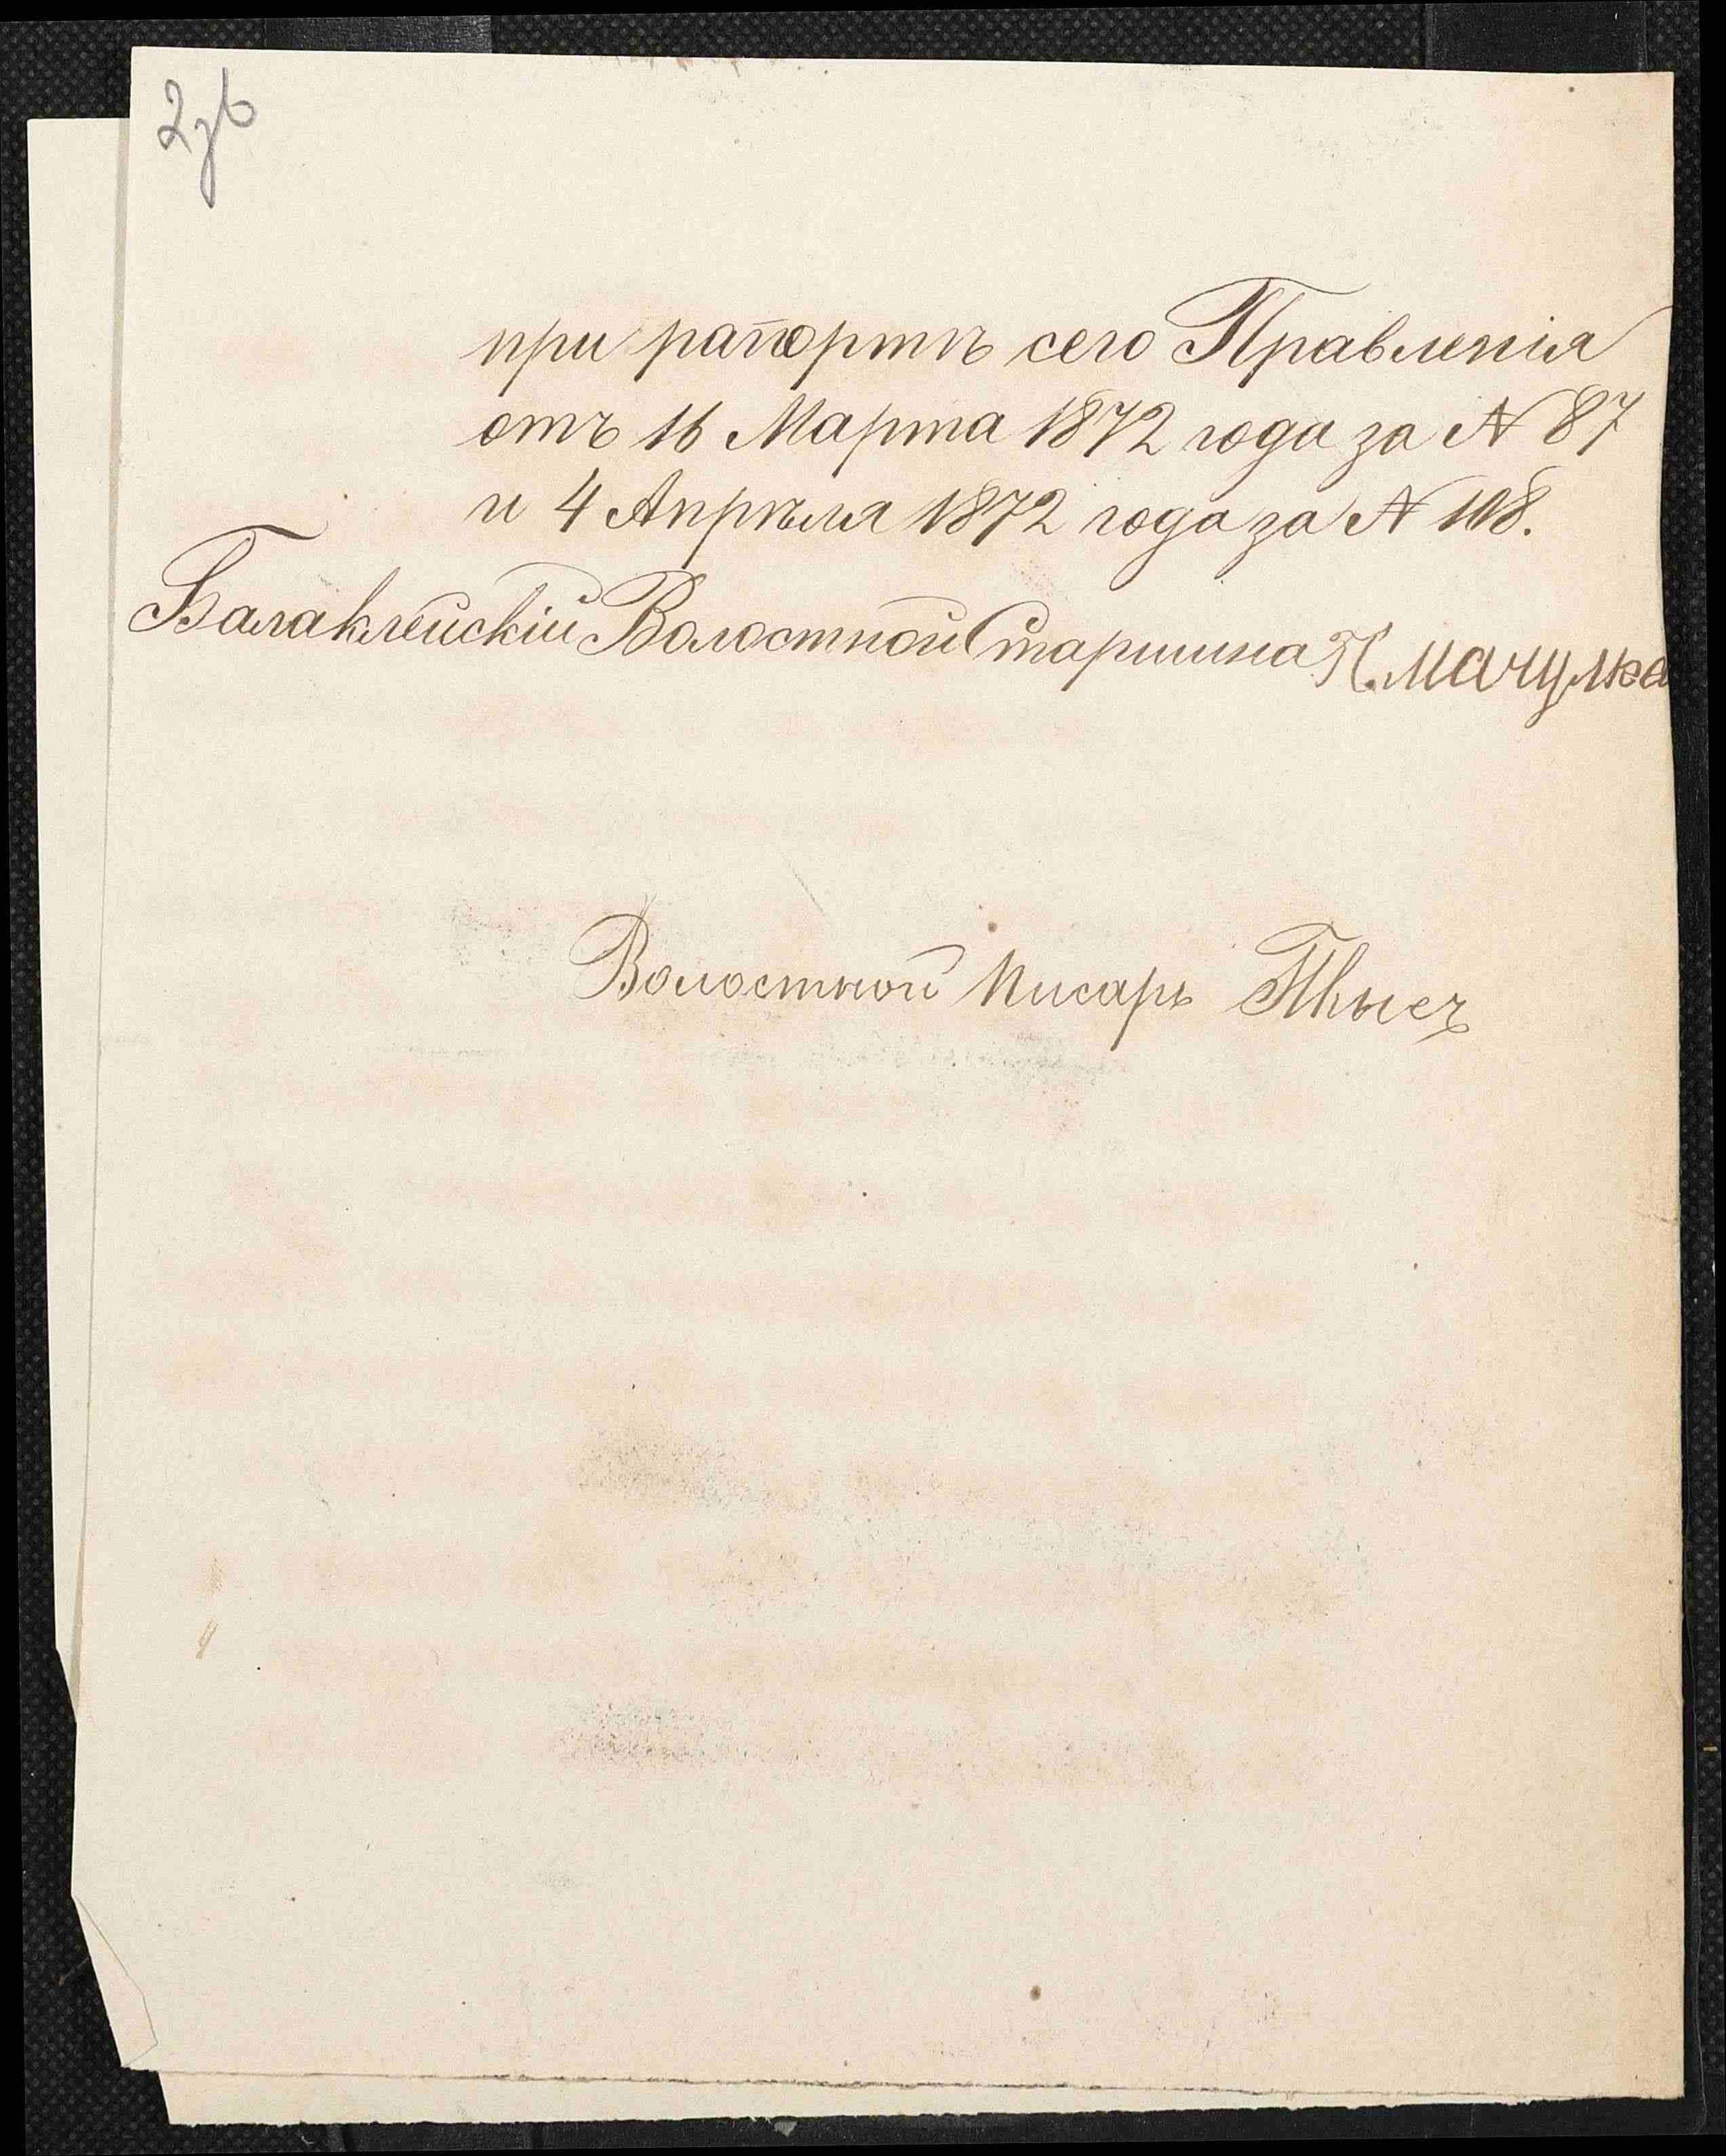 2зв
при рапортѣ сего Правленія
отъ 16 Марта 1872 года за № 87
и 4 Апрѣля 1872 года за № 108.
Балаклейскій Волостной Старшина П. Мачулка
Волостной Писарь